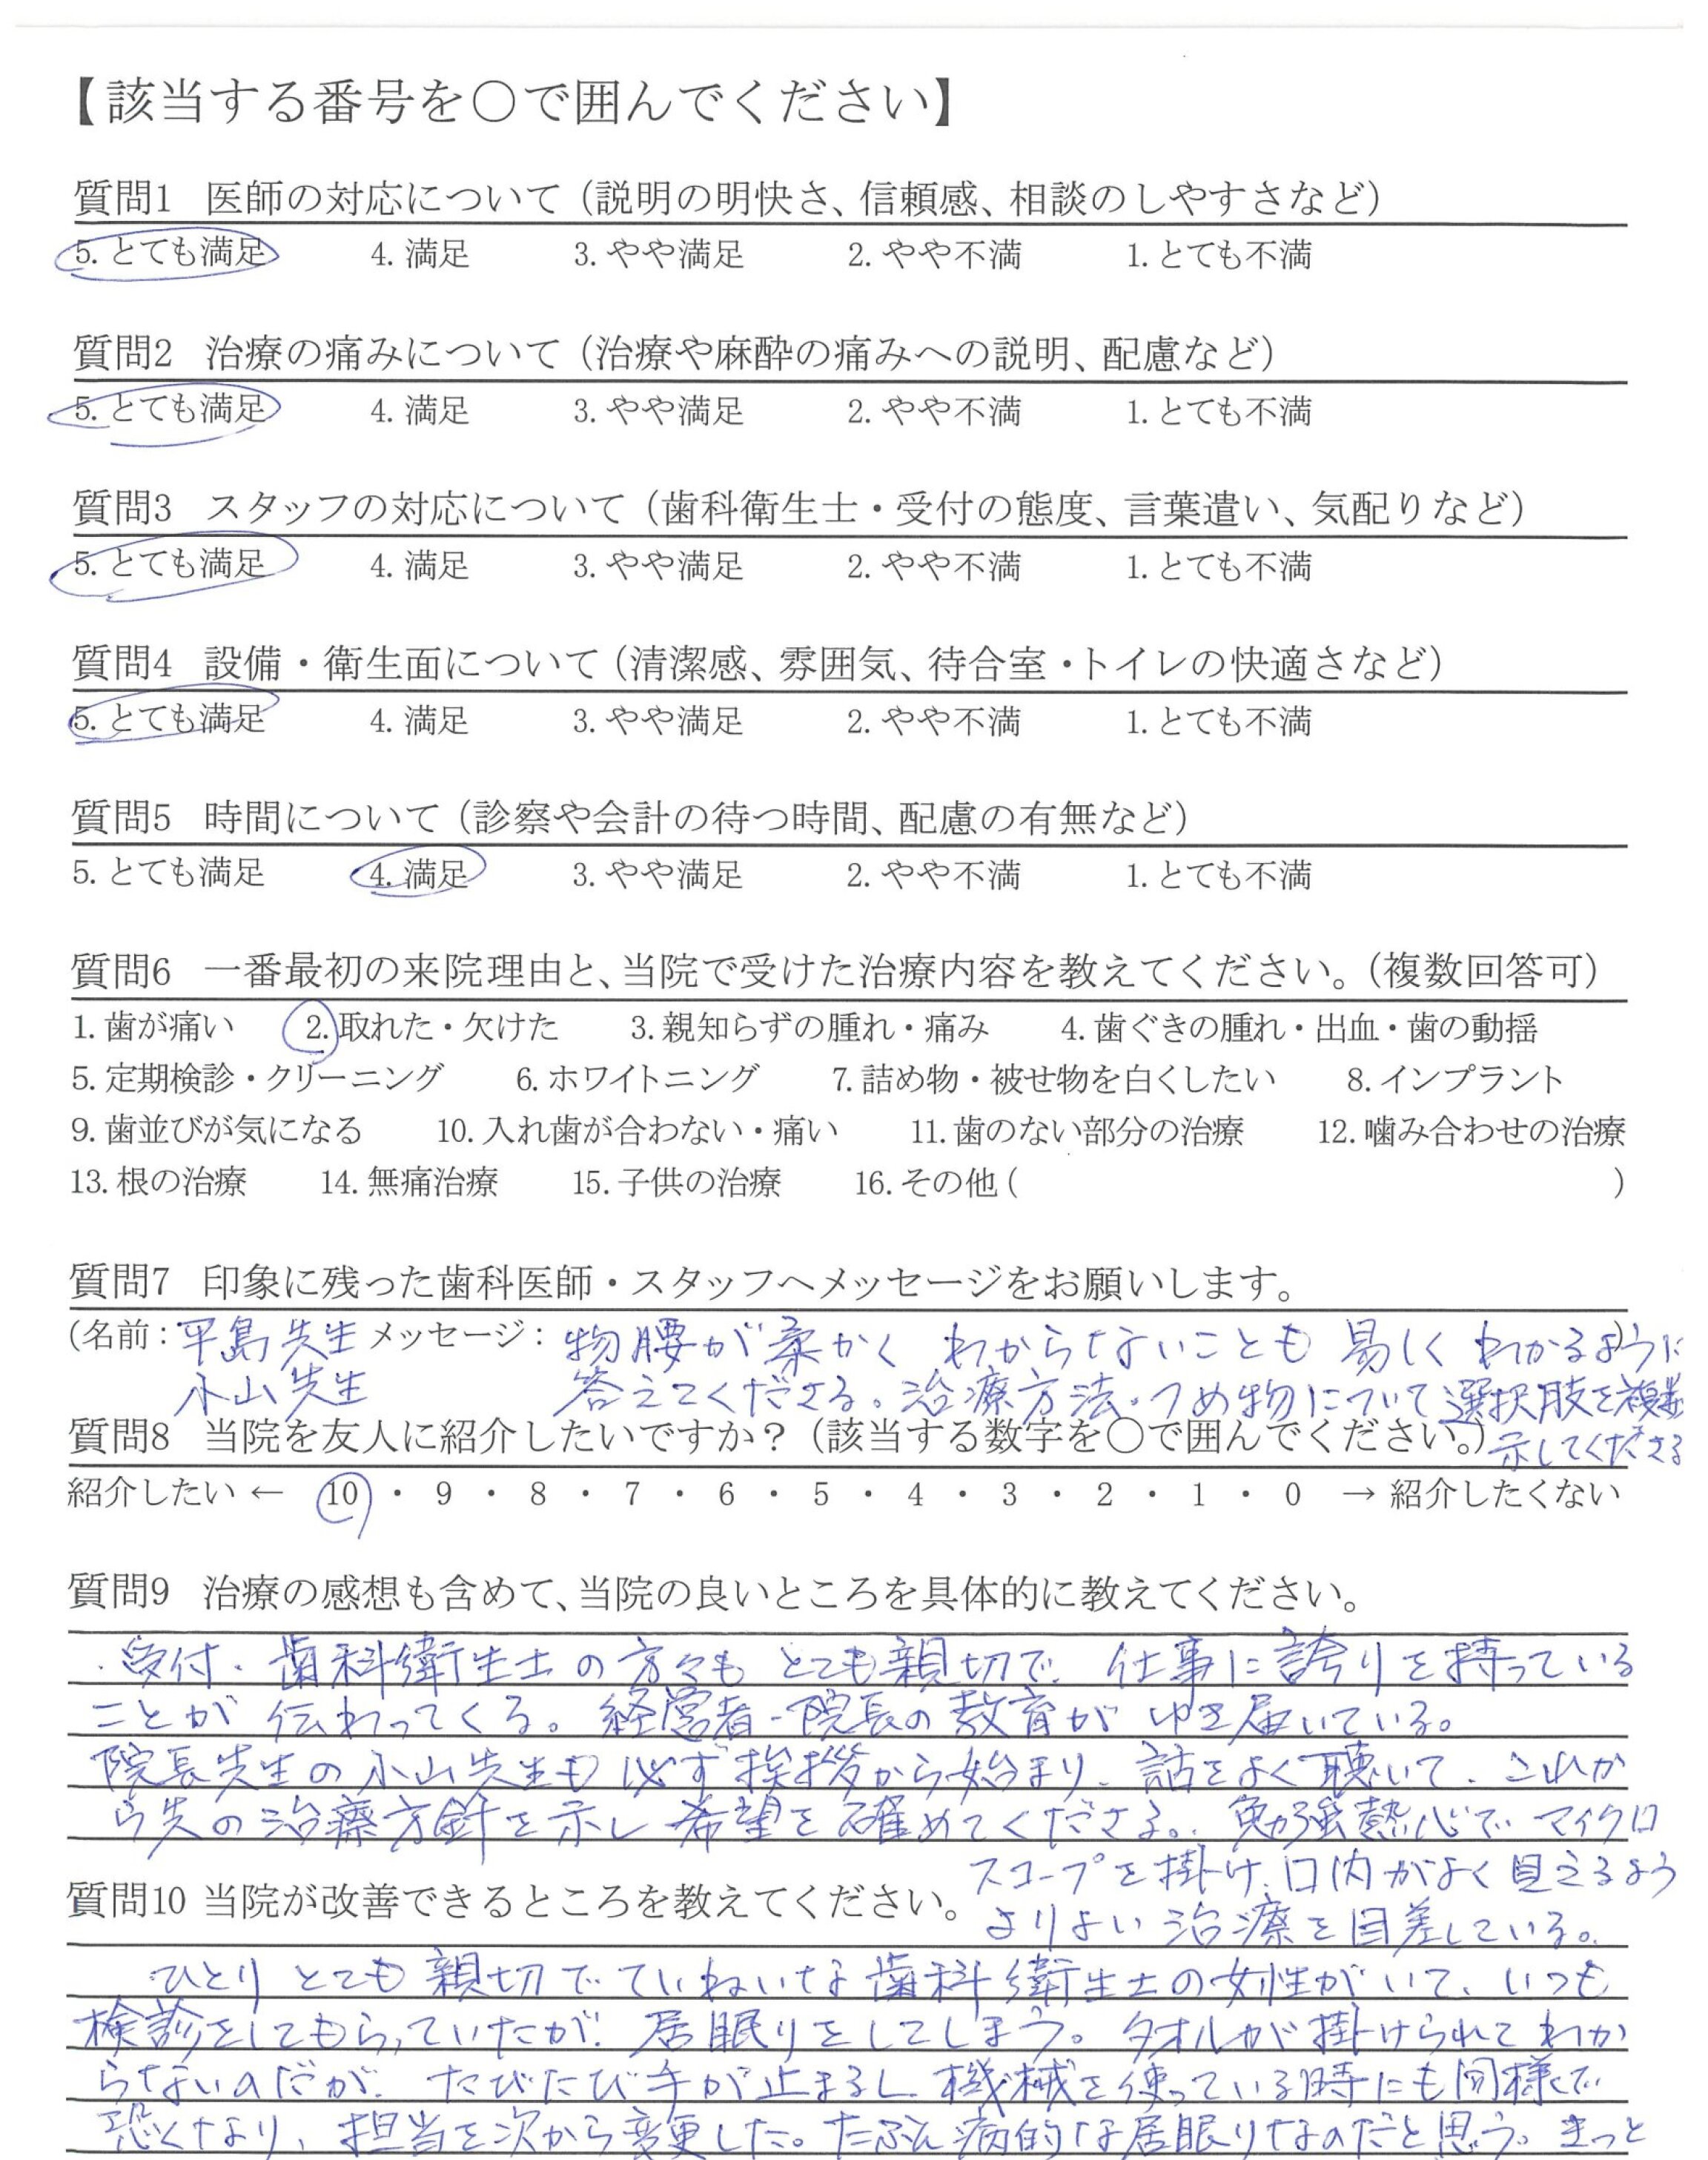 【該当する番号を○で囲んでください】
質問1 医師の対応について（説明の明快さ、信頼感、相談のしやすさなど）
5. とても満足 4. 満足 3. やや満足 2. やや不満 1. とても不満
質問2 治療の痛みについて（治療や麻酔の痛みへの説明、配慮など）
5. とても満足 4. 満足 3. やや満足 2. やや不満 1. とても不満
質問3 スタッフの対応について（歯科衛生士・受付の態度、言葉遣い、気配りなど）
5. とても満足 4. 満足 3. やや満足 2. やや不満 1. とても不満
質問4 設備・衛生面について（清潔感、雰囲気、待合室・トイレの快適さなど）
5. とても満足 4. 満足 3. やや満足 2. やや不満 1. とても不満
質問5 時間について（診察や会計の待つ時間、配慮の有無など）
5. とても満足 4. 満足 3. やや満足 2. やや不満 1. とても不満
質問6 一番最初の来院理由と、当院で受けた治療内容を教えてください。（複数回答可）
1. 歯が痛い 2. 取れた・欠けた 3. 親知らずの腫れ・痛み 4. 歯ぐきの腫れ・出血・歯の動揺
5. 定期検診・クリーニング 6. ホワイトニング 7. 詰め物・被せ物を白くしたい 8. インプラント
9. 歯並びが気になる 10. 入れ歯が合わない・痛い 11. 歯のない部分の治療 12. 噛み合わせの治療
13. 根の治療 14. 無痛治療 15. 子供の治療 16. その他 ( )
質問7 印象に残った歯科医師・スタッフへメッセージをお願いします。
(名前：平島先生 メッセージ：物腰が柔かく わからないことも 易しく わかるように)
小山先生 答えてくださる。治療方法・つめ物について選択肢を複数
示してくださる
質問8 当院を友人に紹介したいですか？（該当する数字を○で囲んでください。）
紹介したい ← 10 ・ 9 ・ 8 ・ 7 ・ 6 ・ 5 ・ 4 ・ 3 ・ 2 ・ 1 ・ 0 → 紹介したくない
質問9 治療の感想も含めて、当院の良いところを具体的に教えてください。
・受付・歯科衛生士の方々も とても親切で、仕事に誇りを持っている
ことが 伝わってくる。経営者・院長の教育が ゆき届いている。
院長先生の小山先生も 必ず挨拶から始まり、話をよく聴いて、これか
ら先の治療方針を示し 希望を確めてくださる。勉強熱心で マイクロ
スコープを掛け、口内がよく見えるよう
よりよい治療を目差している。
質問10 当院が改善できるところを教えてください。
ひとり とても親切で ていねいな歯科衛生士の女性がいて、いつも
検診をしてもらっていたが、居眠りをしてしまう。タオルが掛けられてわか
らないのだが、たびたび手が止まるし、機械を使っている時にも同様で
恐くなり、担当を次から変更した。たぶん病的な居眠りなのだと思う。きっと